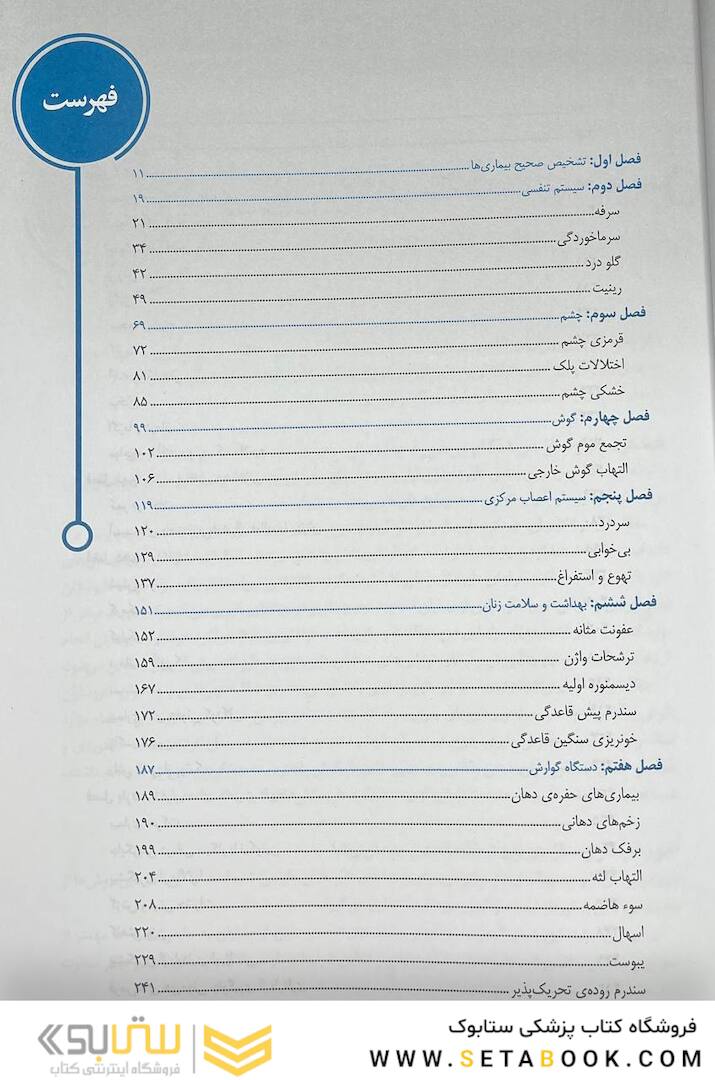 فهرست
فصل اول: تشخیص صحیح بیماری‌ها ۱۱
فصل دوم: سیستم تنفسی ۱۹
سرفه ۲۱
سرماخوردگی ۳۴
گلو درد ۴۲
رینیت ۴۹
فصل سوم: چشم ۶۹
قرمزی چشم ۷۲
اختلالات پلک ۸۱
خشکی چشم ۸۵
فصل چهارم: گوش ۹۹
تجمع موم گوش ۱۰۲
التهاب گوش خارجی ۱۰۶
فصل پنجم: سیستم اعصاب مرکزی ۱۱۹
سردرد ۱۲۰
بی‌خوابی ۱۲۹
تهوع و استفراغ ۱۳۷
فصل ششم: بهداشت و سلامت زنان ۱۵۱
عفونت مثانه ۱۵۲
ترشحات واژن ۱۵۹
دیسمنوره اولیه ۱۶۷
سندرم پیش قاعدگی ۱۷۲
خونریزی سنگین قاعدگی ۱۷۶
فصل هفتم: دستگاه گوارش ۱۸۷
بیماری‌های حفره‌ی دهان ۱۸۹
زخم‌های دهانی ۱۹۰
برفک دهان ۱۹۹
التهاب لثه ۲۰۴
سوء هاضمه ۲۰۸
اسهال ۲۲۰
یبوست ۲۲۹
سندرم روده‌ی تحریک‌پذیر ۲۴۱
فروشگاه کتاب پزشکی ستابوک
WWW.SETABOOK.COM
ستابوک
فروشگاه اینترنتی کتاب